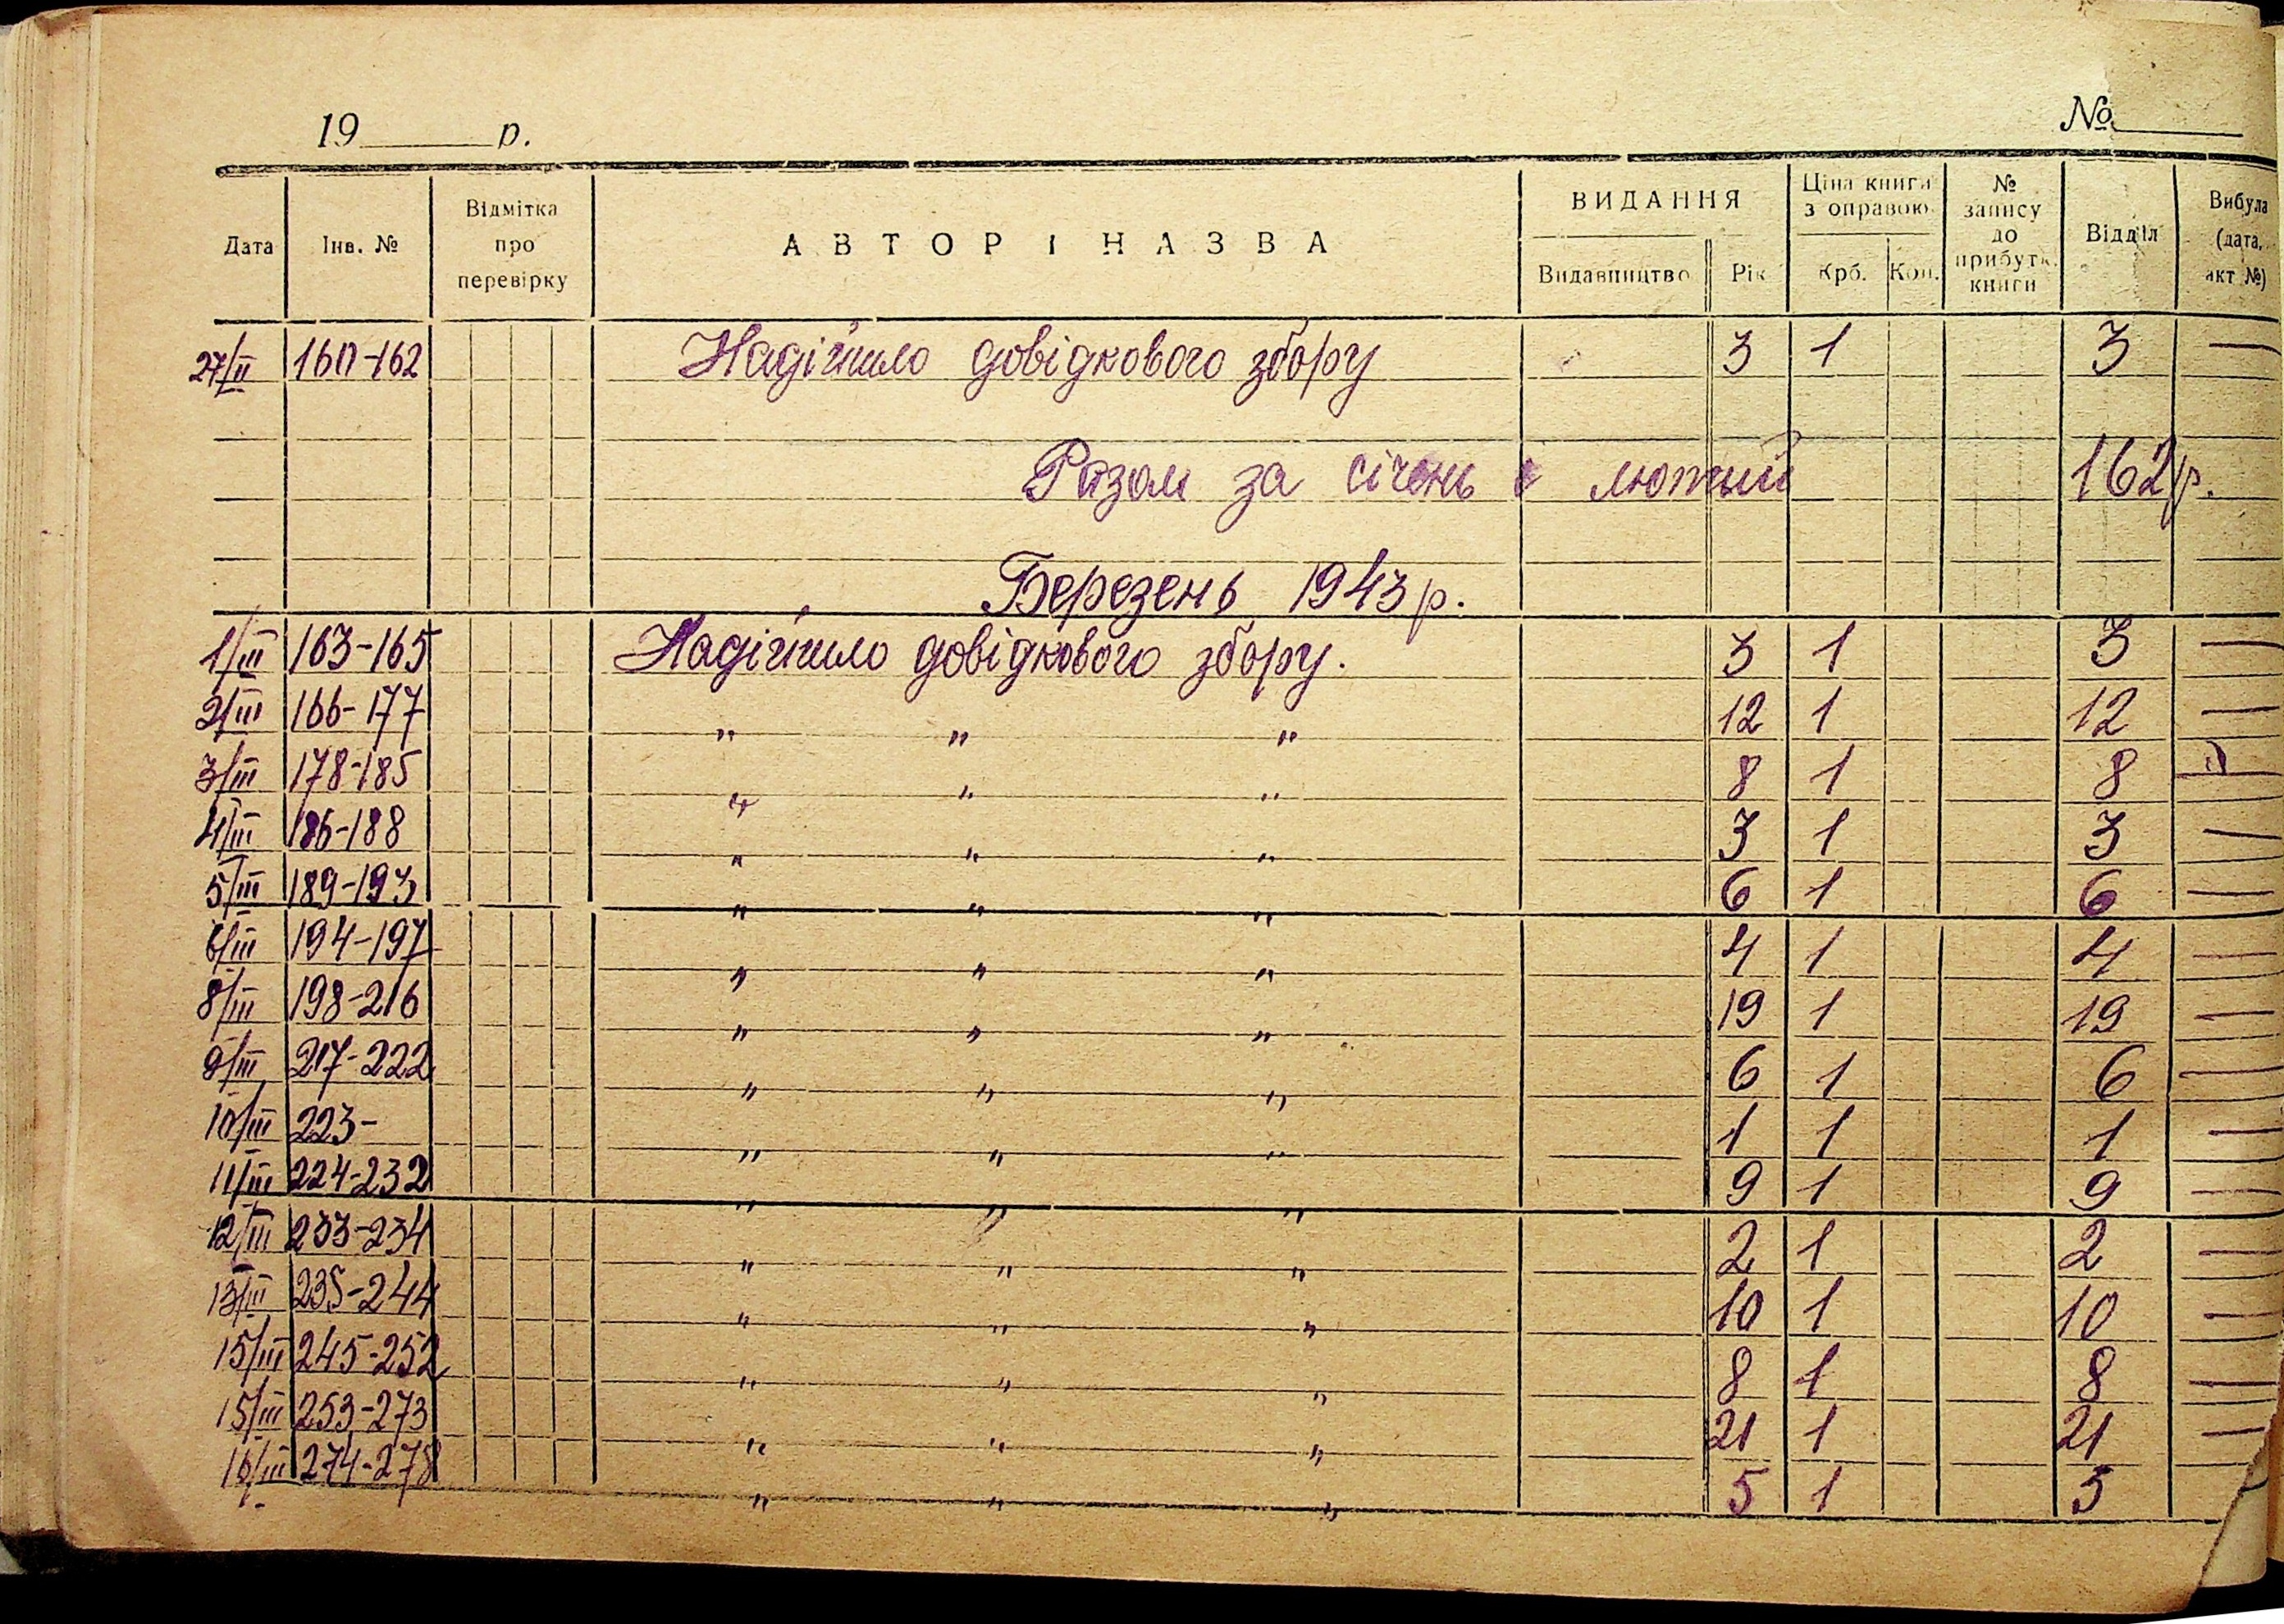 19 р. №
Дата Інв. № Відмітка про перевірку АВТОР І НАЗВА ВИДАННЯ Видавництво Рік Ціна книги з оправою Крб. Коп. № запису до прибутк. книги Відділ Вибула (дата, акт №)
27/II 160-162 Надійшло довідкового збору 3 1 3 —
Разом за січень і лютий 162 р.
Березень 1943 р.
1/III 163-165 Надійшло довідкового збору. 3 1 3 —
2/III 166-177 " " " 12 1 12 —
3/III 178-185 " " " 8 1 8
4/III 186-188 " " " 3 1 3 —
5/III 189-193 " " " 6 1 6 —
6/III 194-197 " " " 4 1 4 —
8/III 198-216 " " " 19 1 19 —
9/III 217-222 " " " 6 1 6 —
10/III 223- " " " 1 1 1 —
11/III 224-232 " " " 9 1 9 —
12/III 233-234 " " " 2 1 2 —
13/III 235-244 " " " 10 1 10 —
15/III 245-252 " " " 8 1 8 —
15/III 253-273 " " " 21 1 21 —
16/III 274-278 " " " 5 1 5